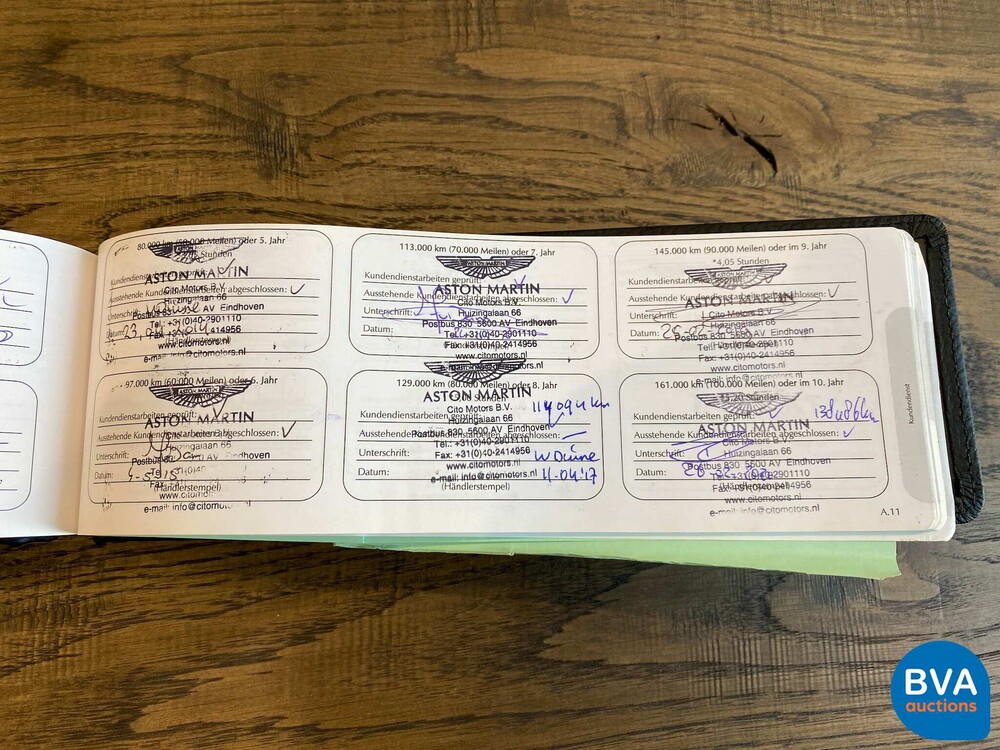 80.000 km (50.000 Meilen) oder 5. Jahr
Stunden
Kundendienstarbeiten geprüft:
ASTON MARTIN
Cito Motors B.V.
Ausstehende Kundendienstarbeiten abgeschlossen: ✓
Huizingalaan 66
Unterschrift:
Postbus 830 5600 AV Eindhoven
Tel.: +31(0)40-2901110
Datum:
Fax: +31(0)40-2414956
(Händlerstempel)
www.citomotors.nl
e-mail: info@citomotors.nl
97.000 km (60.000 Meilen) oder 6. Jahr
Kundendienstarbeiten geprüft:
ASTON MARTIN
Ausstehende Kundendienstarbeiten abgeschlossen: ✓
Huizingalaan 66
Unterschrift:
Eindhoven
Datum:
Fax
www.citomot
e-mail: info@citomot
113.000 km (70.000 Meilen) oder 7. Jahr
Kundendienstarbeiten geprüft: ✓
ASTON MARTIN
Ausstehende Kundendienstarbeiten abgeschlossen: ✓
Cito Motors B.V.
Unterschrift:
Huizingalaan 66
Postbus 830 5600 AV Eindhoven
Datum:
Tel.: +31(0)40-2901110
Fax: +31(0)40-2414956
www.citomotors.nl
e-mail: info@citomotors.nl
129.000 km (80.000 Meilen) oder 8. Jahr
ASTON MARTIN
Stunden
Cito Motors B.V.
Kundendienstarbeiten geprüft:
Huizingalaan 66
Ausstehende Kundendienstarbeiten abgeschlossen:
Postbus 830 5600 AV Eindhoven
Tel.: +31(0)40-2901110
Unterschrift:
Fax: +31(0)40-2414956
W Duine
www.citomotors.nl
Datum:
e-mail: info@citomotors.nl
11-04-'17
(Händlerstempel)
145.000 km (90.000 Meilen) oder im 9. Jahr
*4,05 Stunden
Kundendienstarbeiten geprüft:
ASTON MARTIN
Ausstehende Kundendienstarbeiten abgeschlossen: ✓
Unterschrift:
Cito Motors B.V.
Huizingalaan 66
Datum:
Postbus 830 5600 AV Eindhoven
Tel.: +31(0)40-2901110
Fax: +31(0)40-2414956
www.citomotors.nl
e-mail: info@citomotors.nl
161.000 km (100.000 Meilen) oder im 10. Jahr
Stunden
Kundendienstarbeiten geprüft: ✓
ASTON MARTIN
Ausstehende Kundendienstarbeiten abgeschlossen: ✓
Cito Motors B.V.
Unterschrift:
Huizingalaan 66
Postbus 830 5600 AV Eindhoven
Datum:
Tel.: +31(0)40-2901110
Fax: +31(0)40-2414956
(Händlerstempel)
www.citomotors.nl
e-mail: info@citomotors.nl
Kundendienst
A.11
BVA
auctions